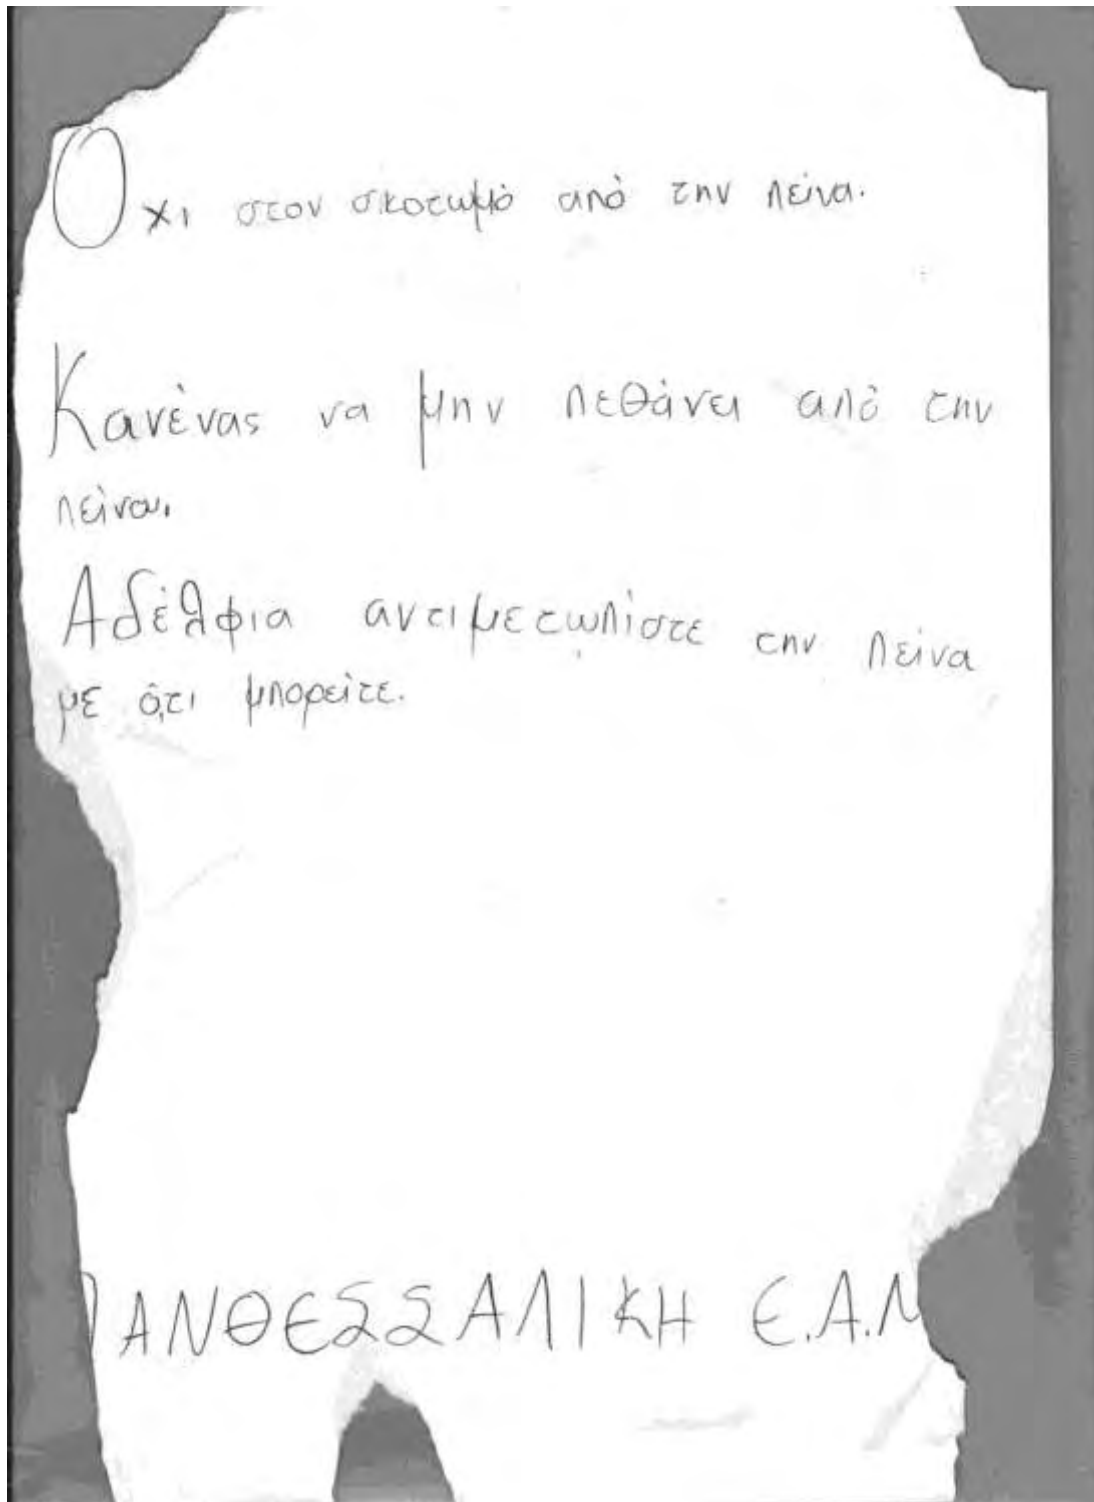 Οχι στον σκοτωμό από την πείνα.
Κανένας να μην πεθάνει από την
πείνα.
Αδέλφια αντιμετωπίστε την πείνα
με ό,τι μπορείτε.
ΠΑΝΘΕΣΣΑΛΙΚΗ Ε.Α.Μ